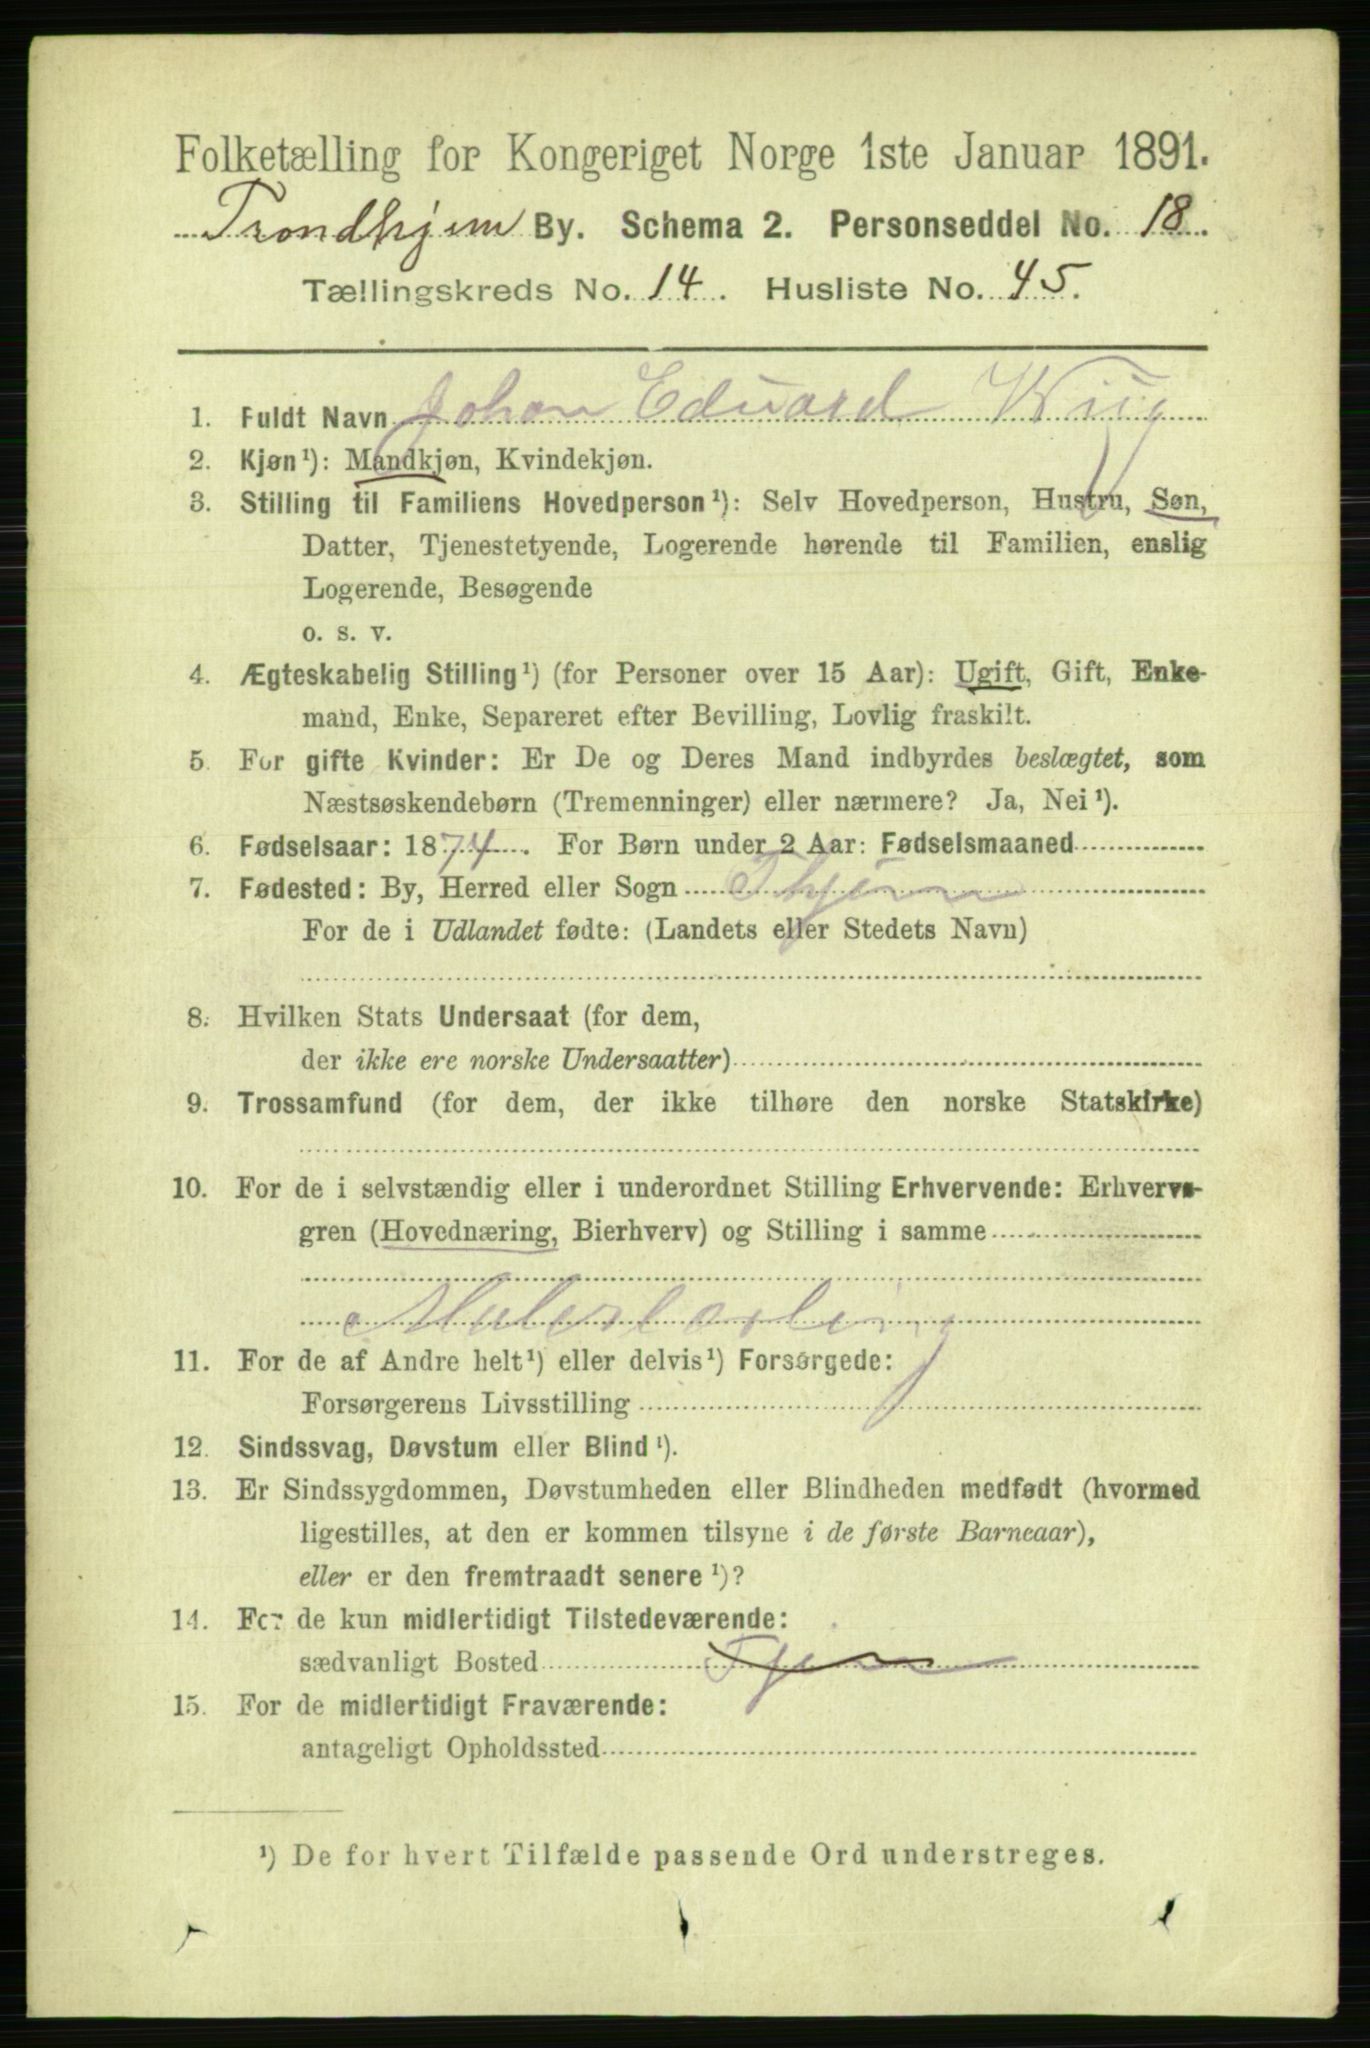 Folketælling for Kongeriget Norge 1ste Januar 1891.
Trondhjem By. Schema 2. Personseddel No. 18.
Tællingskreds No. 14. Husliste No. 45.
1. Fuldt Navn Johan Edvard Wiig
2. Kjøn¹): Mandkjøn, Kvindekjøn.
3. Stilling til Familiens Hovedperson¹): Selv Hovedperson, Hustru, Søn,
Datter, Tjenestetyende, Logerende hørende til Familien, enslig
Logerende, Besøgende
o. s. v.
4. Ægteskabelig Stilling¹) (for Personer over 15 Aar): Ugift, Gift, Enke-
mand, Enke, Separeret efter Bevilling, Lovlig fraskilt.
5. For gifte Kvinder: Er De og Deres Mand indbyrdes beslægtet, som
Næstsøskendebørn (Tremenninger) eller nærmere? Ja, Nei¹).
6. Fødselsaar: 1874. For Børn under 2 Aar: Fødselsmaaned
7. Fødested: By, Herred eller Sogn Thjem
For de i Udlandet fødte: (Landets eller Stedets Navn)
8. Hvilken Stats Undersaat (for dem,
der ikke ere norske Undersaatter)
9. Trossamfund (for dem, der ikke tilhøre den norske Statskirke)
10. For de i selvstændig eller i underordnet Stilling Erhvervende: Erhvervs-
gren (Hovednæring, Bierhverv) og Stilling i samme
Malerlærling
11. For de af Andre helt¹) eller delvis¹) Forsørgede:
Forsørgerens Livsstilling
12. Sindssvag, Døvstum eller Blind¹).
13. Er Sindssygdommen, Døvstumheden eller Blindheden medfødt (hvormed
ligestilles, at den er kommen tilsyne i de første Barneaar),
eller er den fremtraadt senere¹)?
14. For de kun midlertidigt Tilstedeværende:
sædvanligt Bosted Tjem
15. For de midlertidigt Fraværende:
antageligt Opholdssted
¹) De for hvert Tilfælde passende Ord understreges.